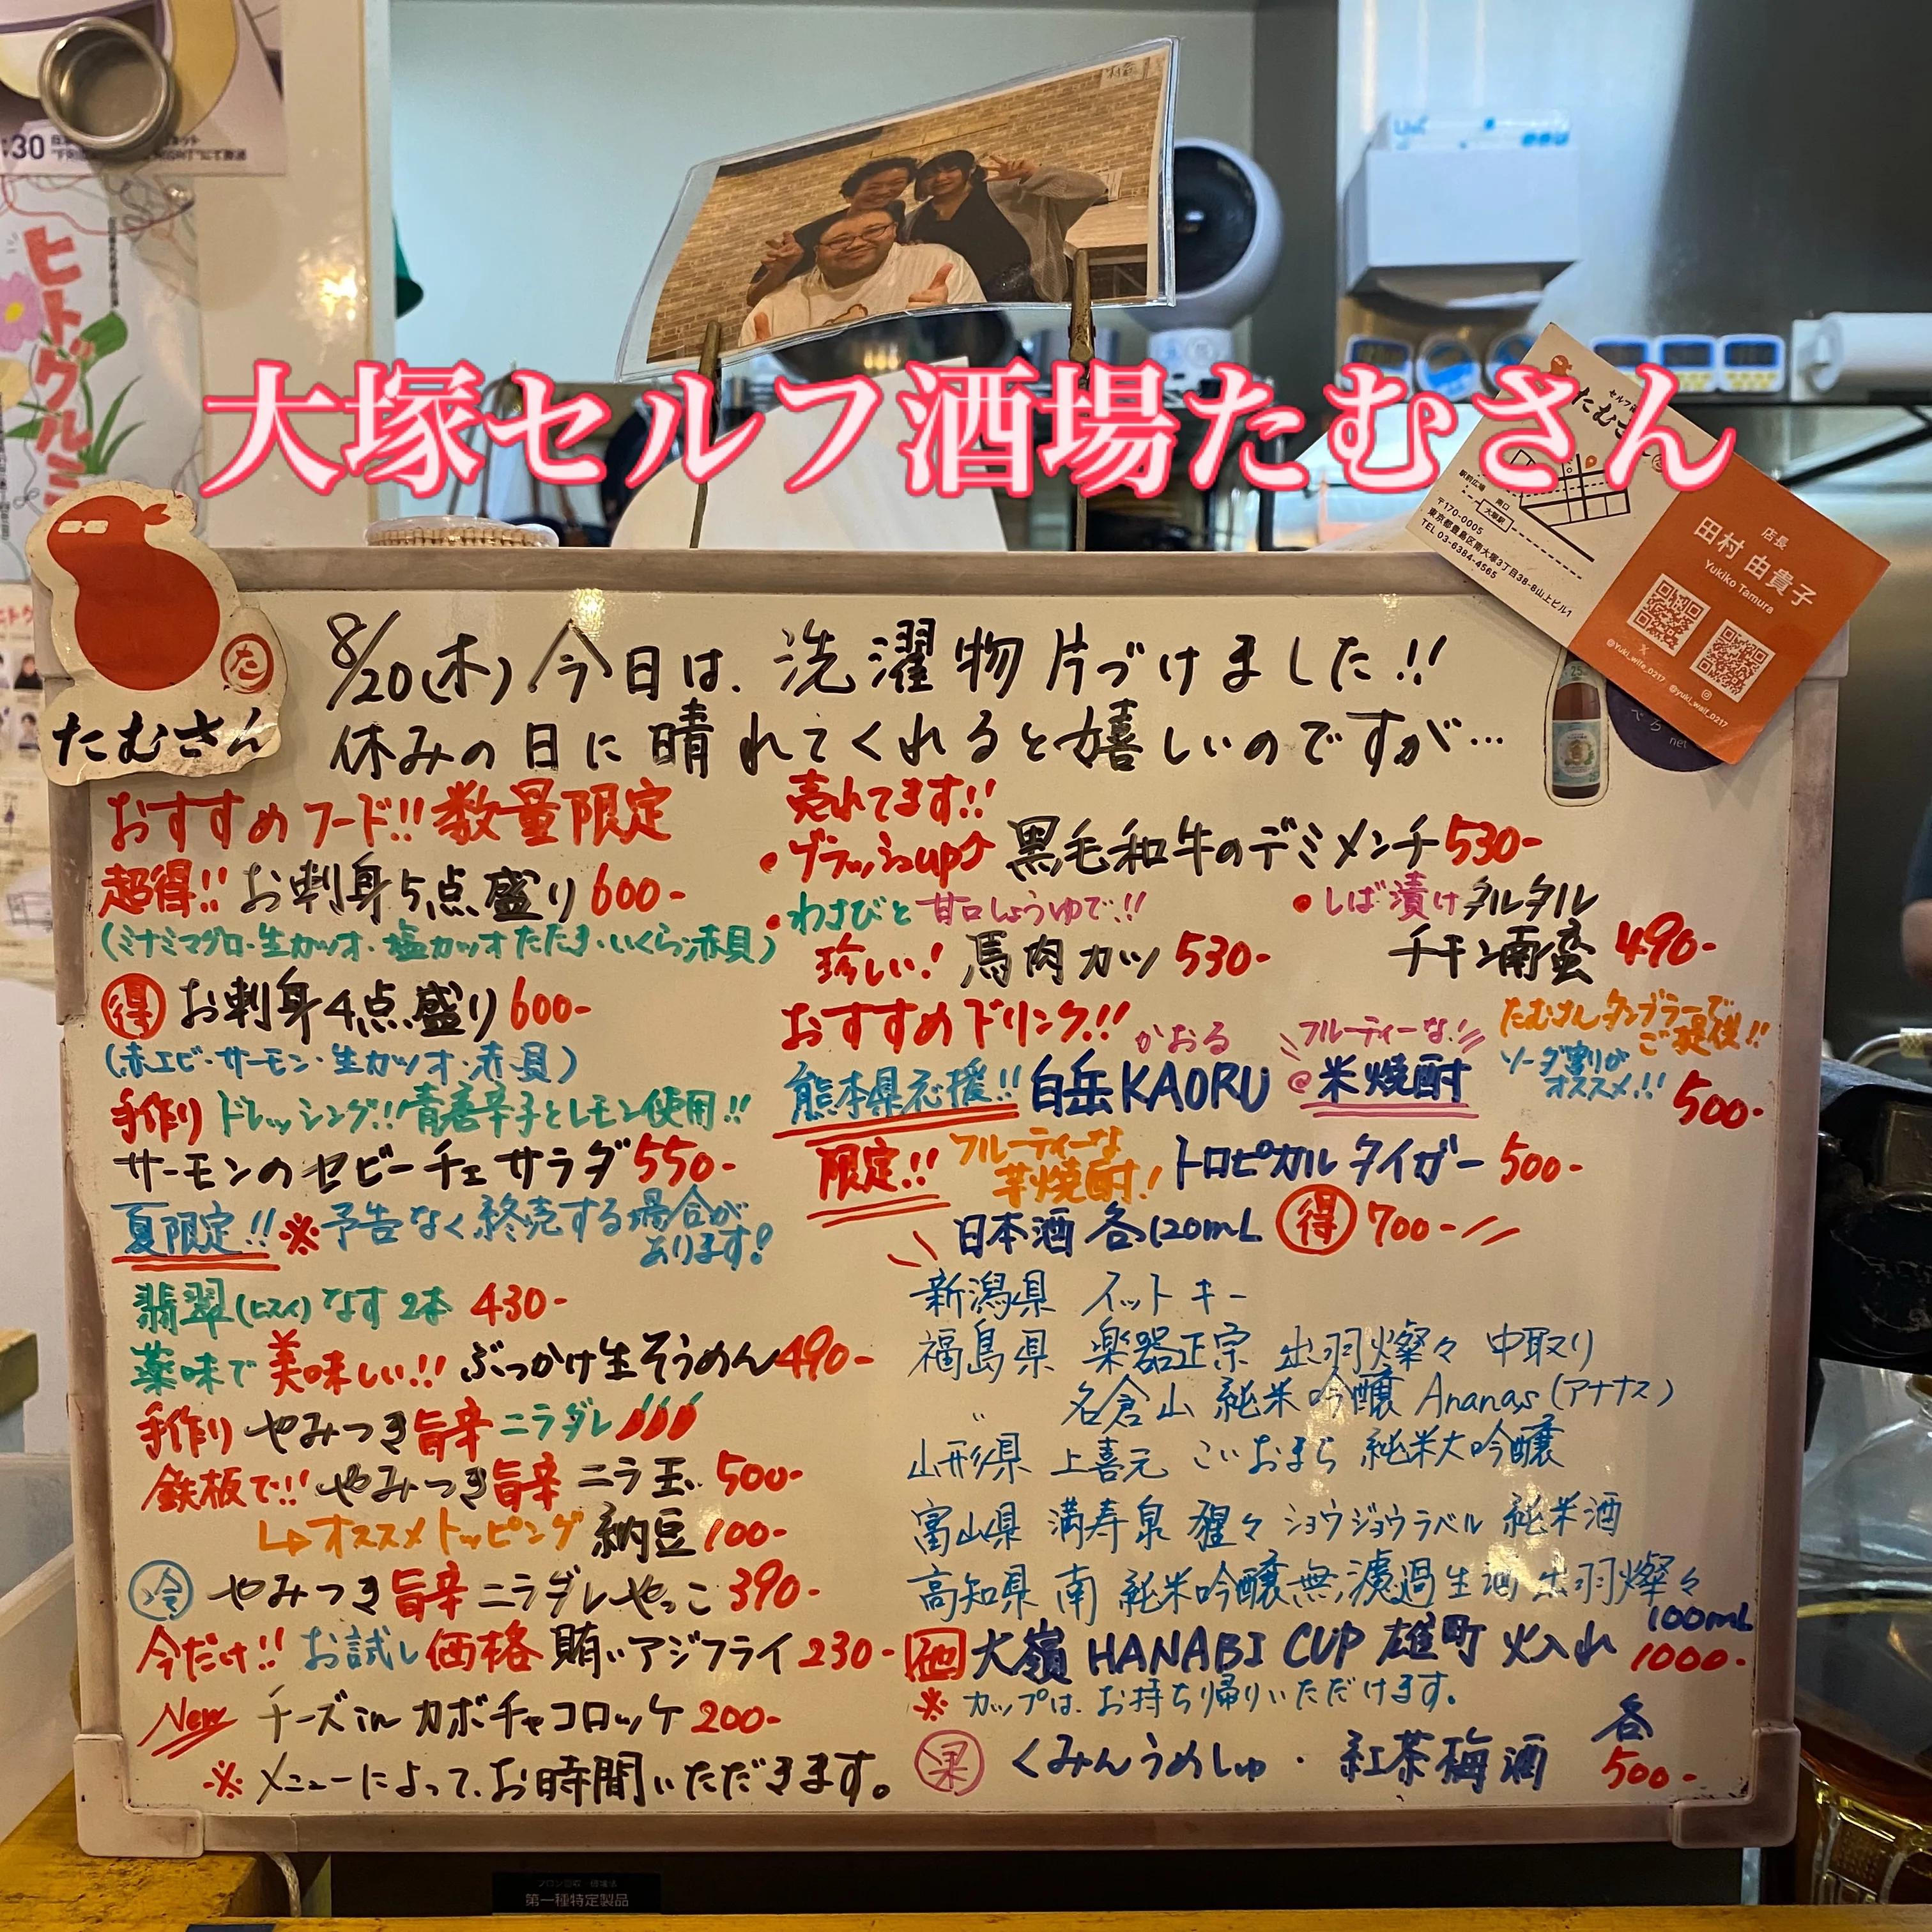 大塚セルフ酒場たむさん
:30
ヒトグルミ
たむさん
た
たむさん
駅前広場
南口
大塚駅
〒170-0005
東京都豊島区南大塚3丁目38-8山上ビル1
TEL 03-6384-4565
店長
田村 由貴子
Yukiko Tamura
@Yuki_wife_0217
@yuki_waif_0217
8/20(木) 今日は、洗濯物片づけました!!
休みの日に晴れてくれると嬉しいのですが…
おすすめフード!! 数量限定
超得!! お刺身5点盛り 600-
(ミナミマグロ・生カツオ・塩カツオたたき・いくら・赤貝)
得 お刺身4点盛り 600-
(赤エビ・サーモン・生カツオ・赤貝)
手作り ドレッシング!! 青唐辛子とレモン使用!!
サーモンのセビーチェサラダ 550-
夏限定!! ※予告なく終売する場合が
あります!
翡翠(ヒスイ)なす2本 430-
薬味で 美味しい!! ぶっかけ生そうめん 490-
手作り やみつき旨辛ニラダレ
鉄板で!! やみつき旨辛ニラ玉 500-
↳オススメトッピング 納豆 100-
冷 やみつき旨辛ニラダレやっこ 390-
今だけ!! お試し価格 賄いアジフライ 230-
New チーズinカボチャコロッケ 200-
※メニューによって、お時間いただきます。
売れてます!!
・ブラッシュup↑ 黒毛和牛のデミメンチ 530-
・わさびと甘口しょうゆで!!
珍しい! 馬肉カツ 530-
・しば漬けタルタル
チキン南蛮 490-
おすすめドリンク!!
かおる
フルーティーな!!
たむさんタンブラーで
ご提供!!
熊本県応援!! 白岳KAORU @米焼酎
ソーダ割りが
オススメ!! 500-
限定!! フルーティーな
芋焼酎! トロピカルタイガー 500-
日本酒 各120mL 得 700-
新潟県 イットキー
福島県 楽器正宗 出羽燦々 中取り
〃 名倉山 純米吟醸 Ananas(アナナス)
山形県 上喜元 こいおまち 純米大吟醸
富山県 満寿泉 猩々 ショウジョウラベル 純米酒
高知県 南 純米吟醸無濾過生酒 出羽燦々
100mL
大嶺 HANABI CUP 雄町 火入れ 1000-
※カップは、お持ち帰りいただけます。
果 くみんうめしゅ・紅茶梅酒 各
500-
第一種特定製品